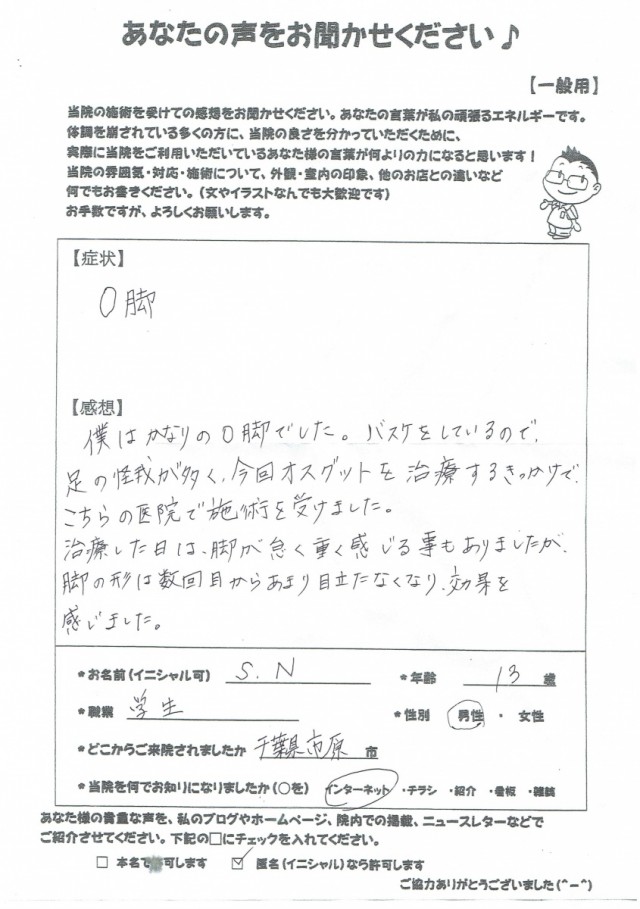 あなたの声をお聞かせください♪
【一般用】
当院の施術を受けての感想をお聞かせください。あなたの言葉が私の頑張るエネルギーです。
体調を崩されている多くの方に、当院の良さを分かっていただくために、
実際に当院をご利用いただいているあなた様の言葉が何よりの力になると思います！
当院の雰囲気・対応・施術について、外観・室内の印象、他のお店との違いなど
何でもお書きください。（文やイラストなんでも大歓迎です）
お手数ですが、よろしくお願いします。
【症状】
O脚
【感想】
僕はかなりのO脚でした。バスケをしているので、
足の怪我が多く、今回オスグットを治療するきっかけで、
こちらの医院で施術を受けました。
治療した日は、脚が怠く重く感じる事もありましたが、
脚の形は数回目からあまり目立たなくなり、効果を
感じました。
*お名前（イニシャル可） S.N *年齢 13 歳
*職業 学生 *性別 男性 ・ 女性
*どこからご来院されましたか 千葉県市原 市
*当院を何でお知りになりましたか（○を） インターネット ・チラシ ・紹介 ・看板 ・雑誌
あなた様の貴重な声を、私のブログやホームページ、院内での掲載、ニュースレターなどで
ご紹介させてください。下記の□にチェックを入れてください。
□ 本名で許可します ☑ 匿名（イニシャル）なら許可します
ご協力ありがとうございました（^－^）